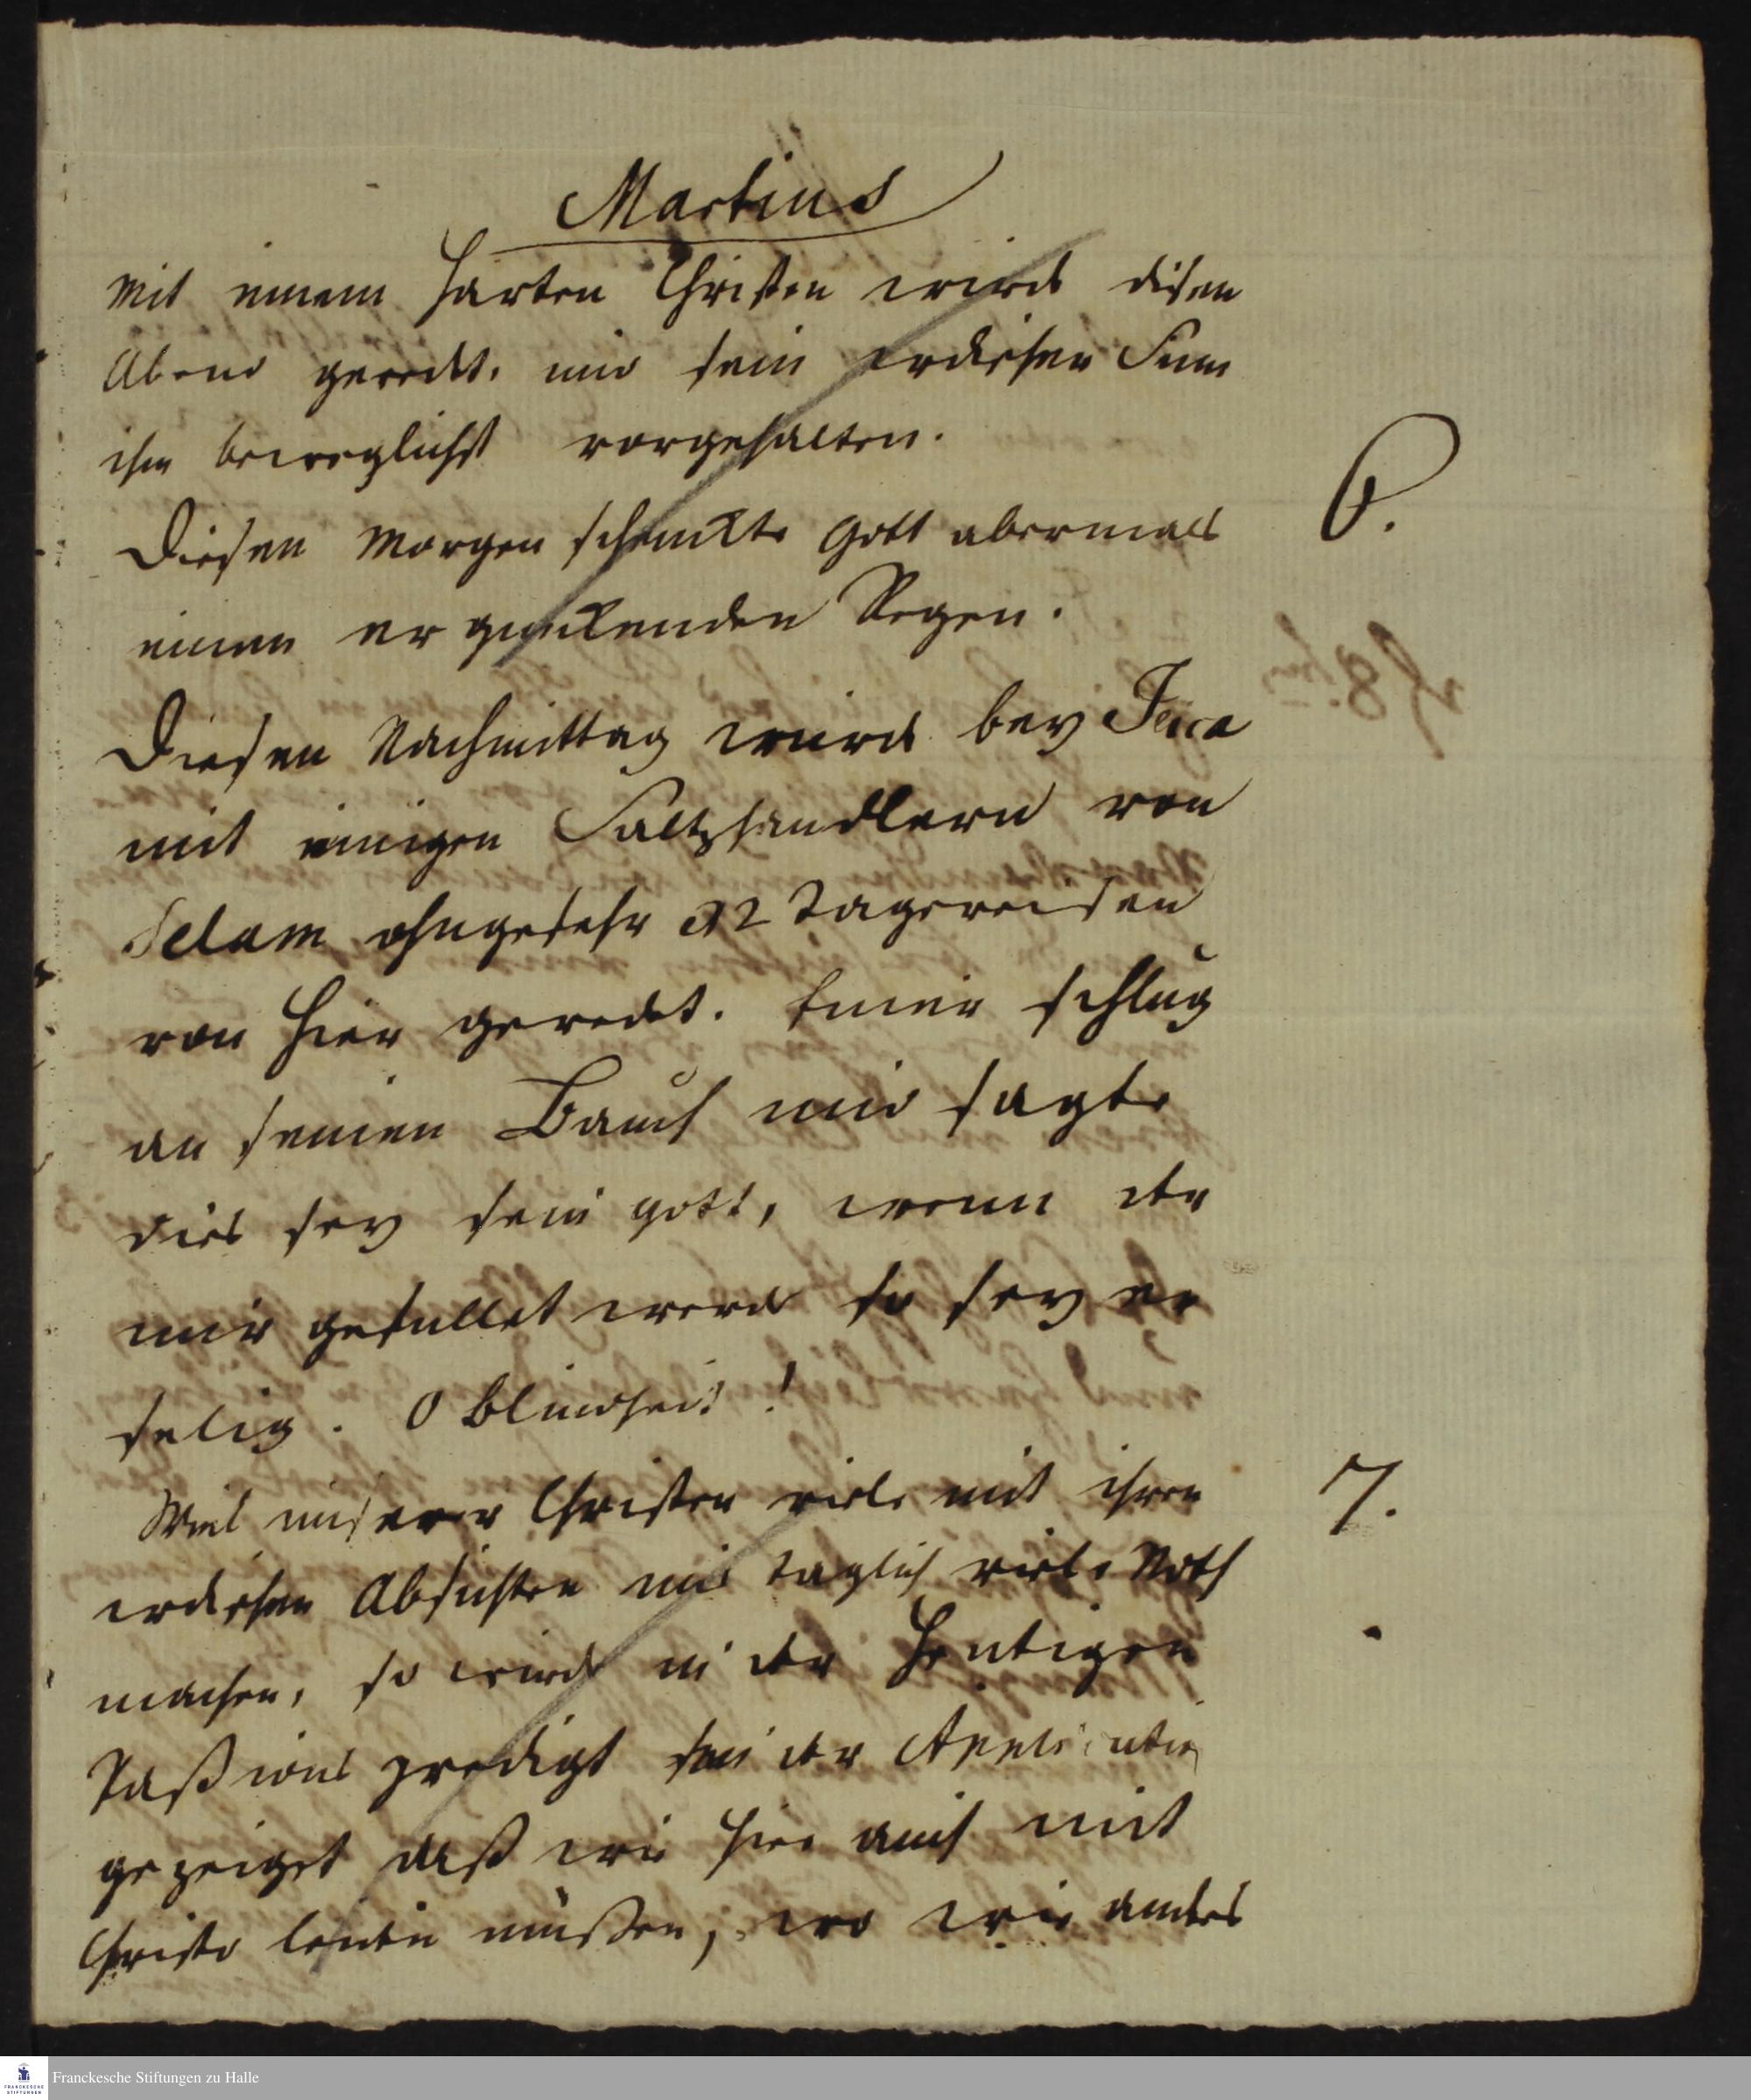 Martius
mit einem harten Christen wird disen
Abend geredet. und sein irdischer Sinn
ihm beweglichst vorgehalten.
6.
Diesen Morgen schenckte Gott abermals
einen erquickenden Regen.
Diesen Nachmittag wurde bey
mit einigen Saltzhandlern von
Selam ohngefehr 12 Tagereisen
von hier geredet. Einer schlug
an seinen Bauch und sagte
dies sey sein gott, wenn der
nur gefullet werde so sey er
selig. O Blindheit!
7.
Weil unserer Christen viele mit ihren
irdischen Absichten uns taglich viele Noth
machen, so wurde in der heutigen
Passions predigt bei der Application
gezeiget daß wir hier auch mit
Christo leiden müssen, wo wir anders
Franckesche Stiftungen zu Halle